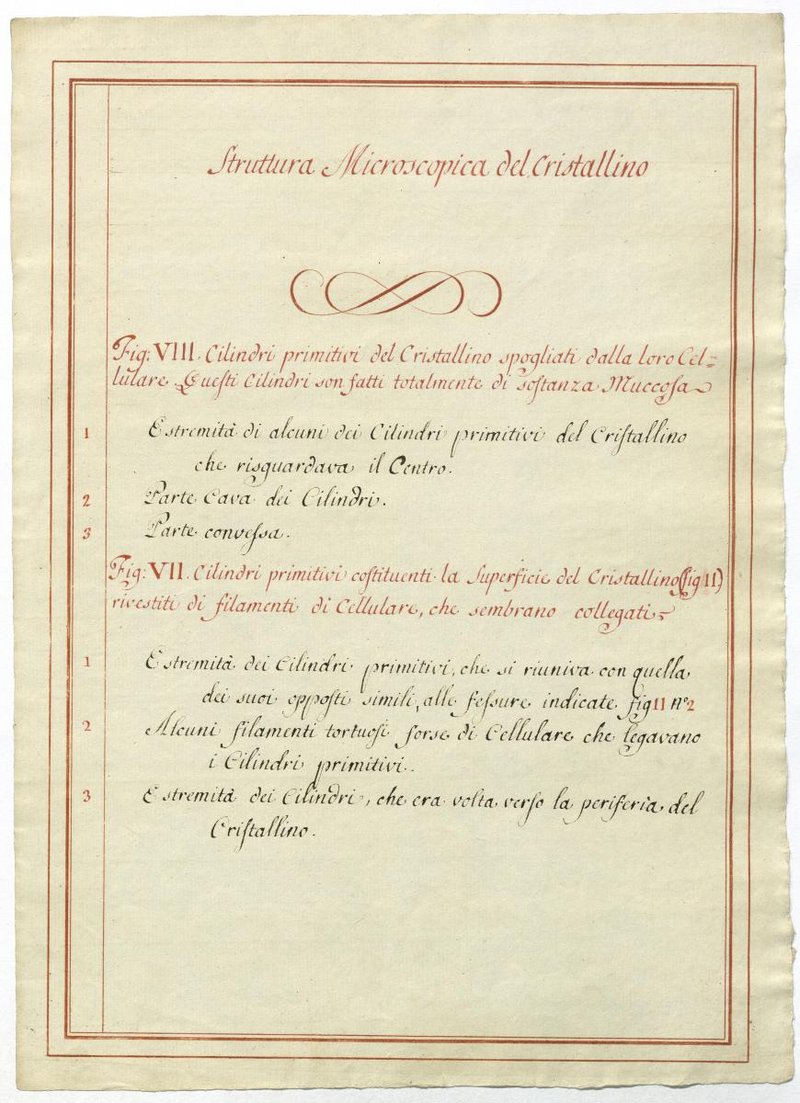 Struttura Microscopica del Cristallino
Fig: VIII. Cilindri primitivi del Cristallino spogliati dalla loro Cel=
lulare Questi Cilindri son fatti totalmente di sostanza Muccosa
1 Estremità di alcuni dei Cilindri primitivi del Cristallino
che risguardava il Centro.
2 Parte Cava dei Cilindri.
3 Parte convessa.
Fig: VII. Cilindri primitivi costituenti la Superficie del Cristallino (fig 11)
rivestiti di filamenti di Cellulare, che sembrano collegati
1 Estremità dei Cilindri primitivi, che si riuniva con quella
dei suoi opposti simili, alle fessure indicate fig 11 no 2
2 Alcuni filamenti tortuosi forse di Cellulare che legavano
i Cilindri primitivi.
3 Estremità dei Cilindri, che era volta verso la periferia del
Cristallino.